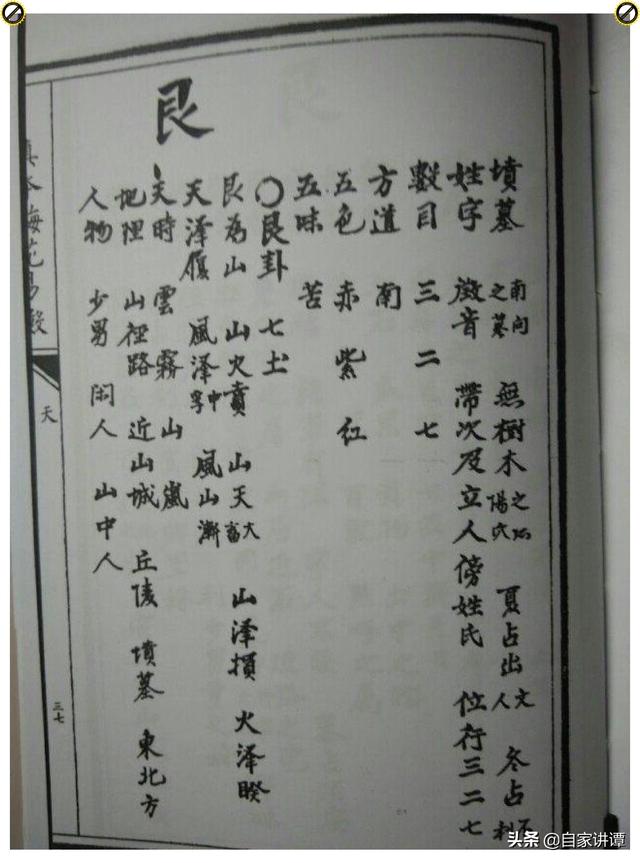 艮
墳墓 南向之墓 無樹木之所陽穴 夏占出文人 冬占不利
姓字 徵音 帶次及立人傍姓氏 位行三二七
數目 三 二 七
方道 南
五色 赤 紫 紅
五味 苦
○艮卦 七土
艮為山 山火賁 山天大畜 山泽損 火泽睽
天泽履 風泽中孚 風山漸
天時 雲 霧 山嵐
地理 山徑路 近山城 丘陵 墳墓 東北方
人物 少男 閑人 山中人
本梅花易數
天
三七
头条 @自家讲谭